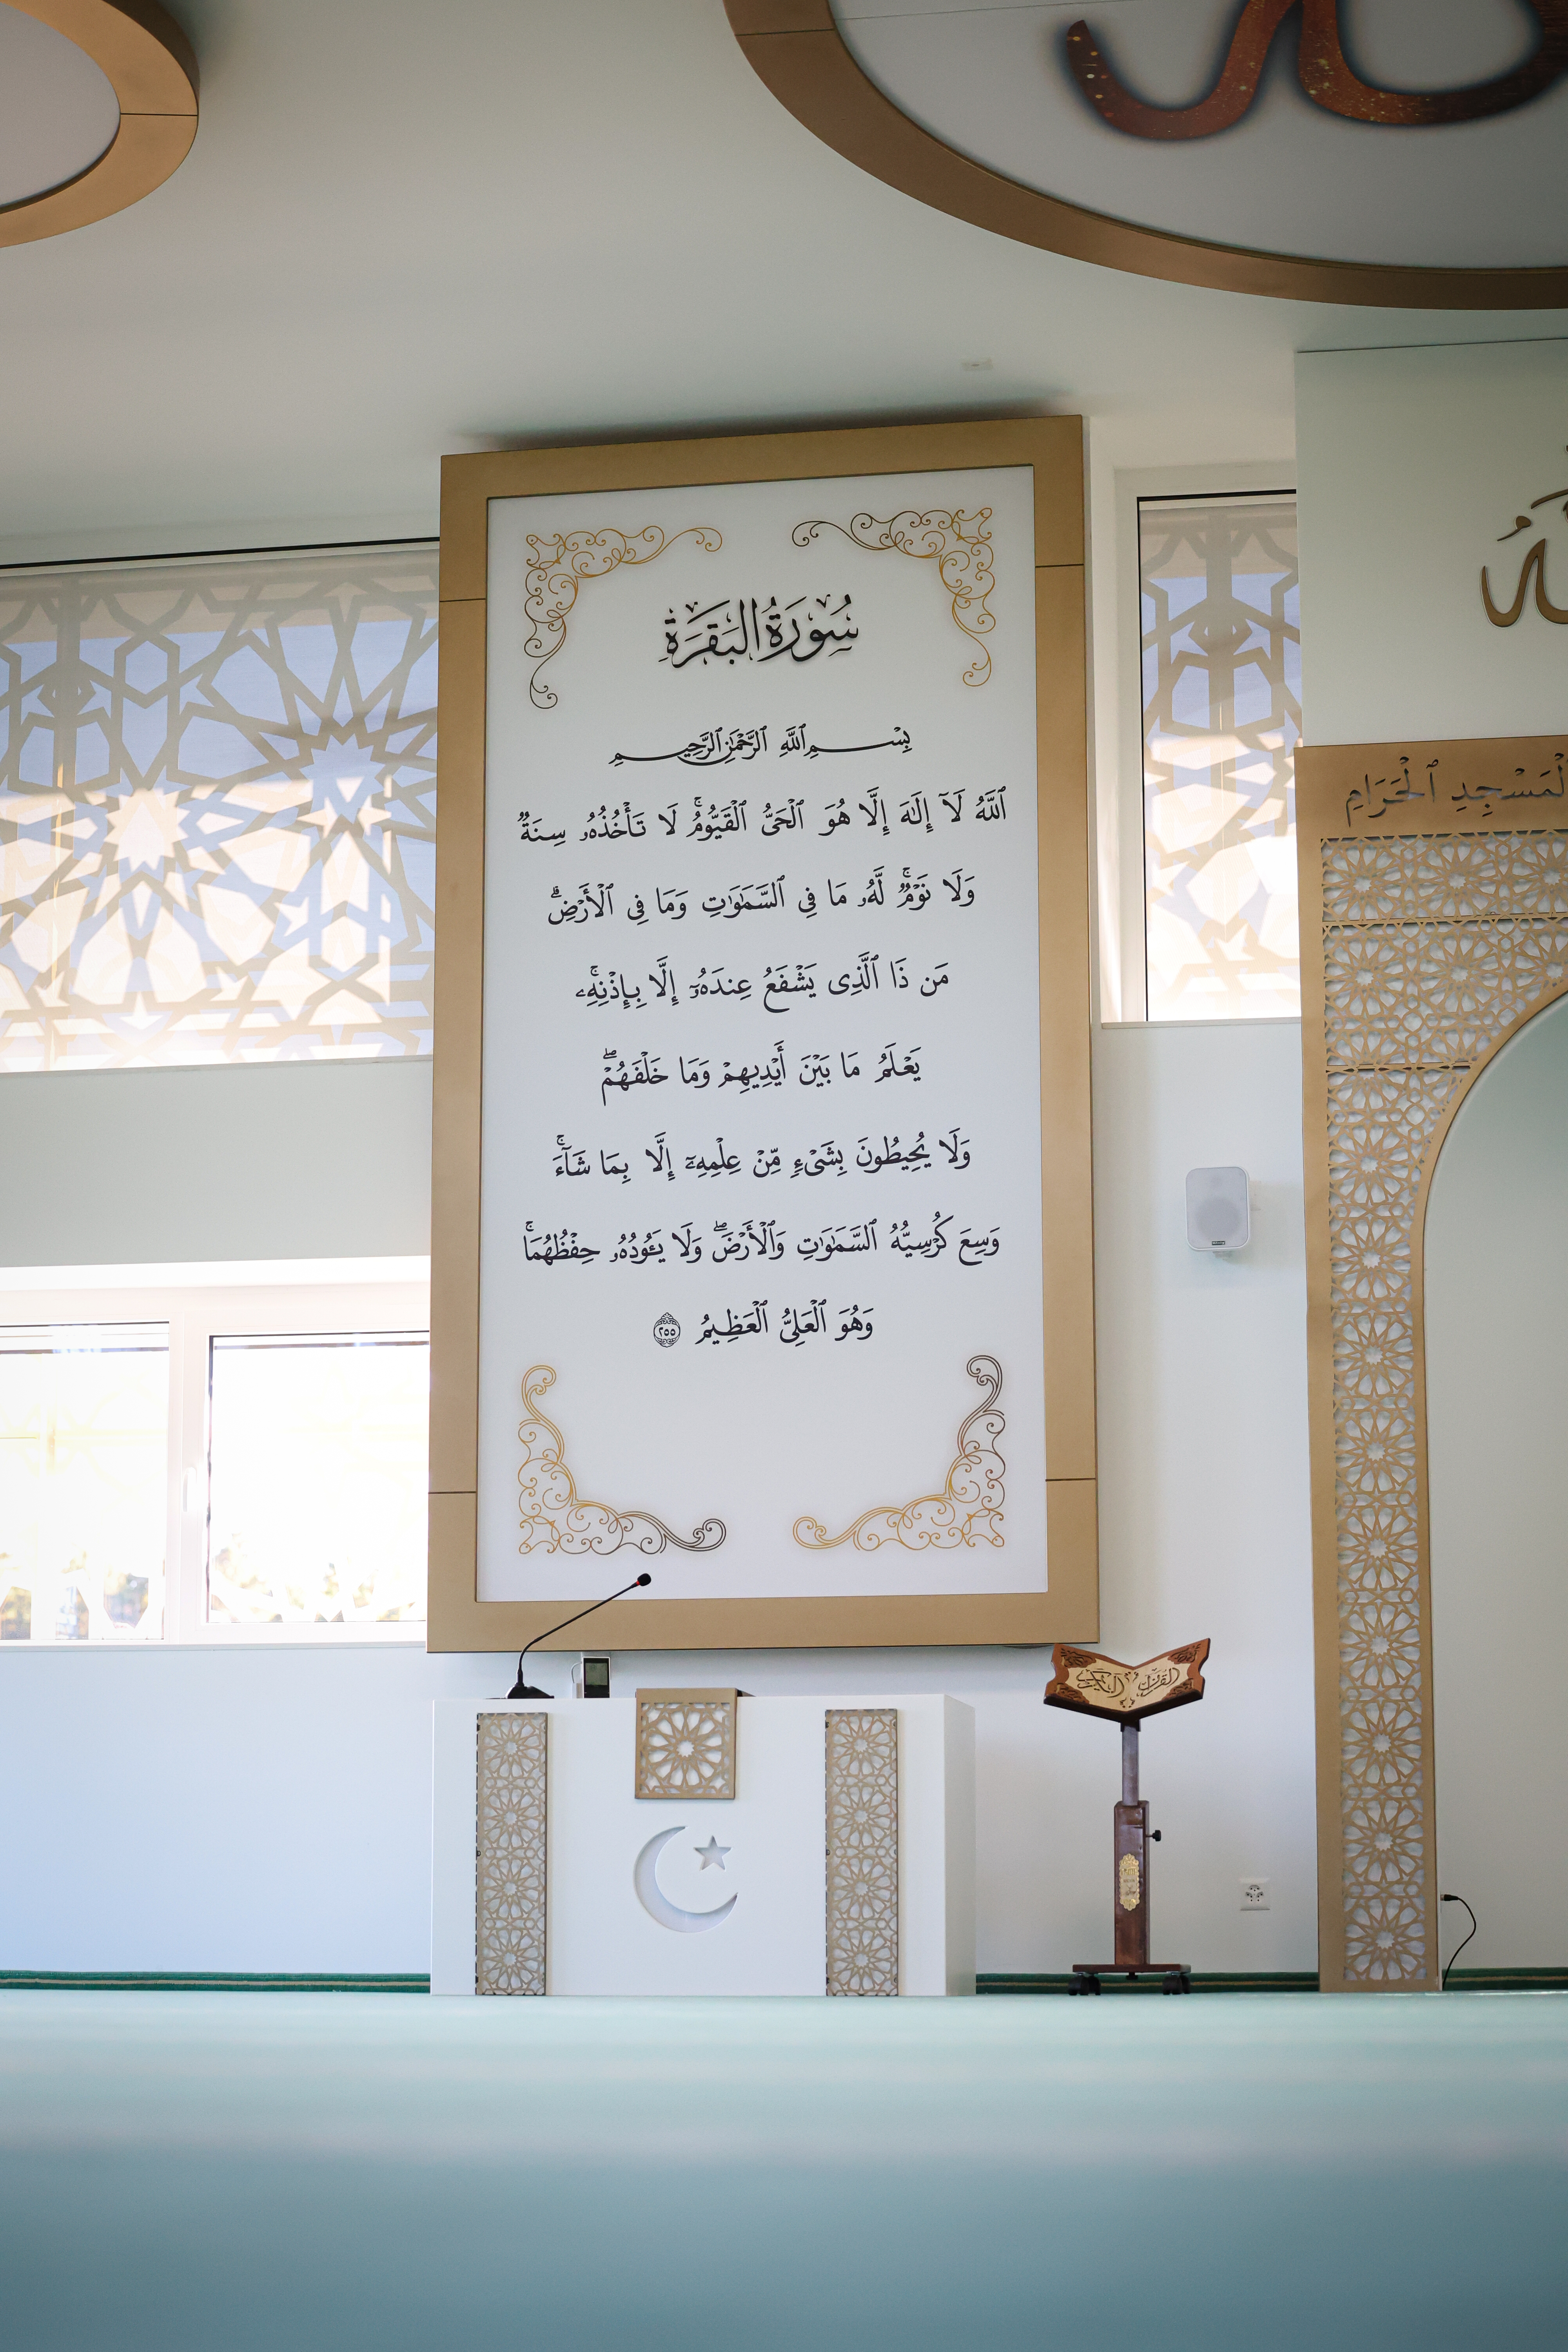 سُورَةُ البَقَرَةِ
بِسْمِ ٱللَّهِ ٱلرَّحْمَٰنِ ٱلرَّحِيمِ
ٱللَّهُ لَآ إِلَٰهَ إِلَّا هُوَ ٱلْحَىُّ ٱلْقَيُّومُ ۚ لَا تَأْخُذُهُۥ سِنَةٌ
وَلَا نَوْمٌ ۚ لَّهُۥ مَا فِى ٱلسَّمَٰوَٰتِ وَمَا فِى ٱلْأَرْضِ ۗ
مَن ذَا ٱلَّذِى يَشْفَعُ عِندَهُۥٓ إِلَّا بِإِذْنِهِۦ ۚ
يَعْلَمُ مَا بَيْنَ أَيْدِيهِمْ وَمَا خَلْفَهُمْ ۖ
وَلَا يُحِيطُونَ بِشَىْءٍ مِّنْ عِلْمِهِۦٓ إِلَّا بِمَا شَآءَ ۚ
وَسِعَ كُرْسِيُّهُ ٱلسَّمَٰوَٰتِ وَٱلْأَرْضَ ۖ وَلَا يَـُٔودُهُۥ حِفْظُهُمَا ۚ
وَهُوَ ٱلْعَلِىُّ ٱلْعَظِيمُ ٢٥٥
ٱلْمَسْجِدِ ٱلْحَرَامِ
القرآن الكريم